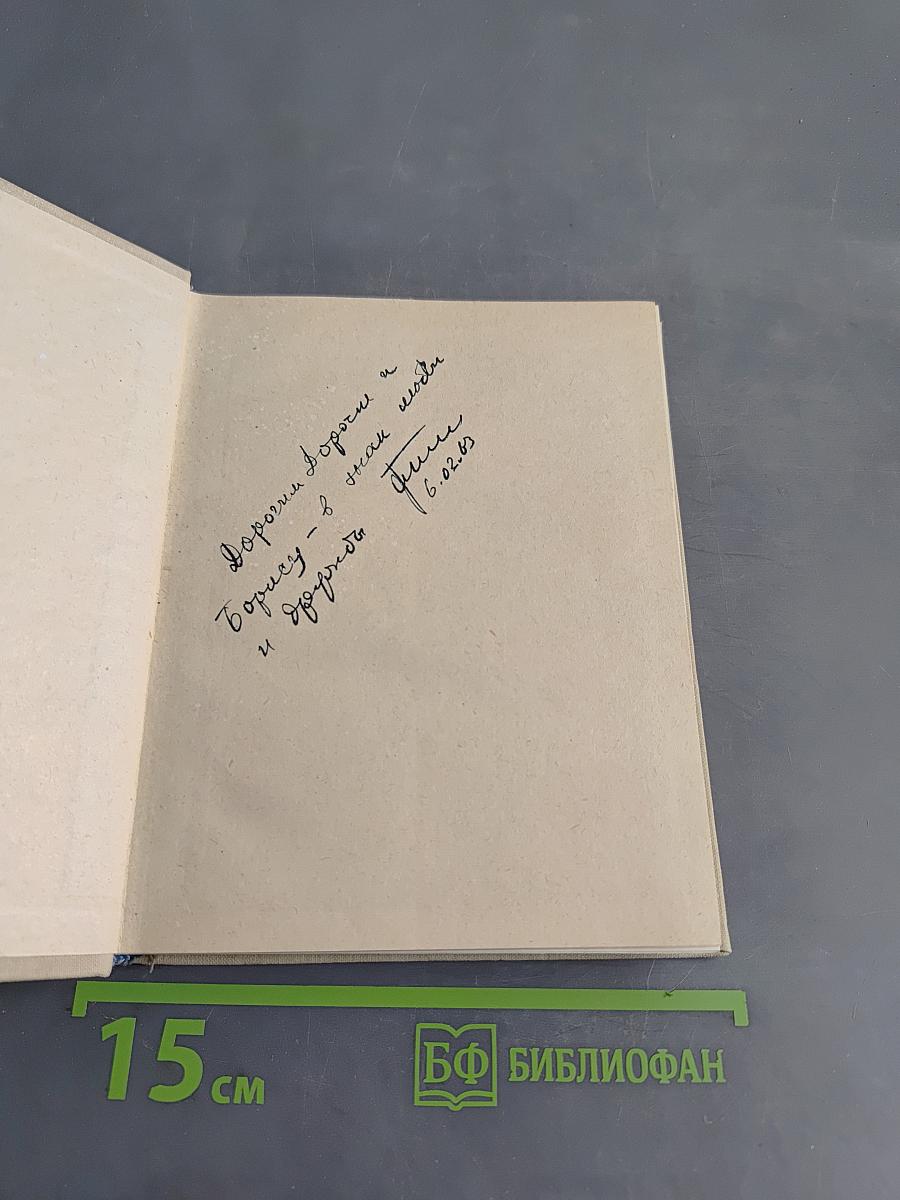 Дорогим Дорочке и
Борису - в знак любви
и дружбы
6.02.03
15 см
БФ БИБЛИОФАН